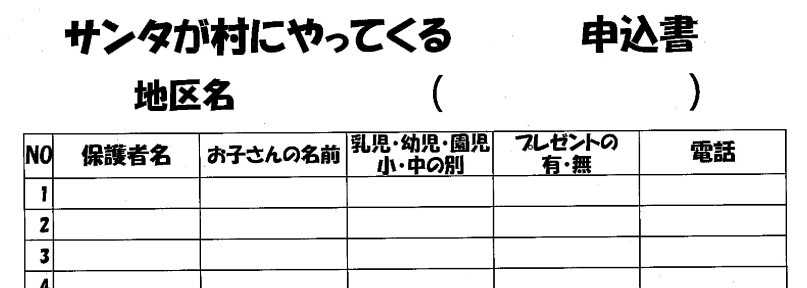 サンタが村にやってくる 申込書
地区名 ( )
NO 保護者名 お子さんの名前 乳児・幼児・園児 小・中の別 プレゼントの 有・無 電話
1
2
3
4